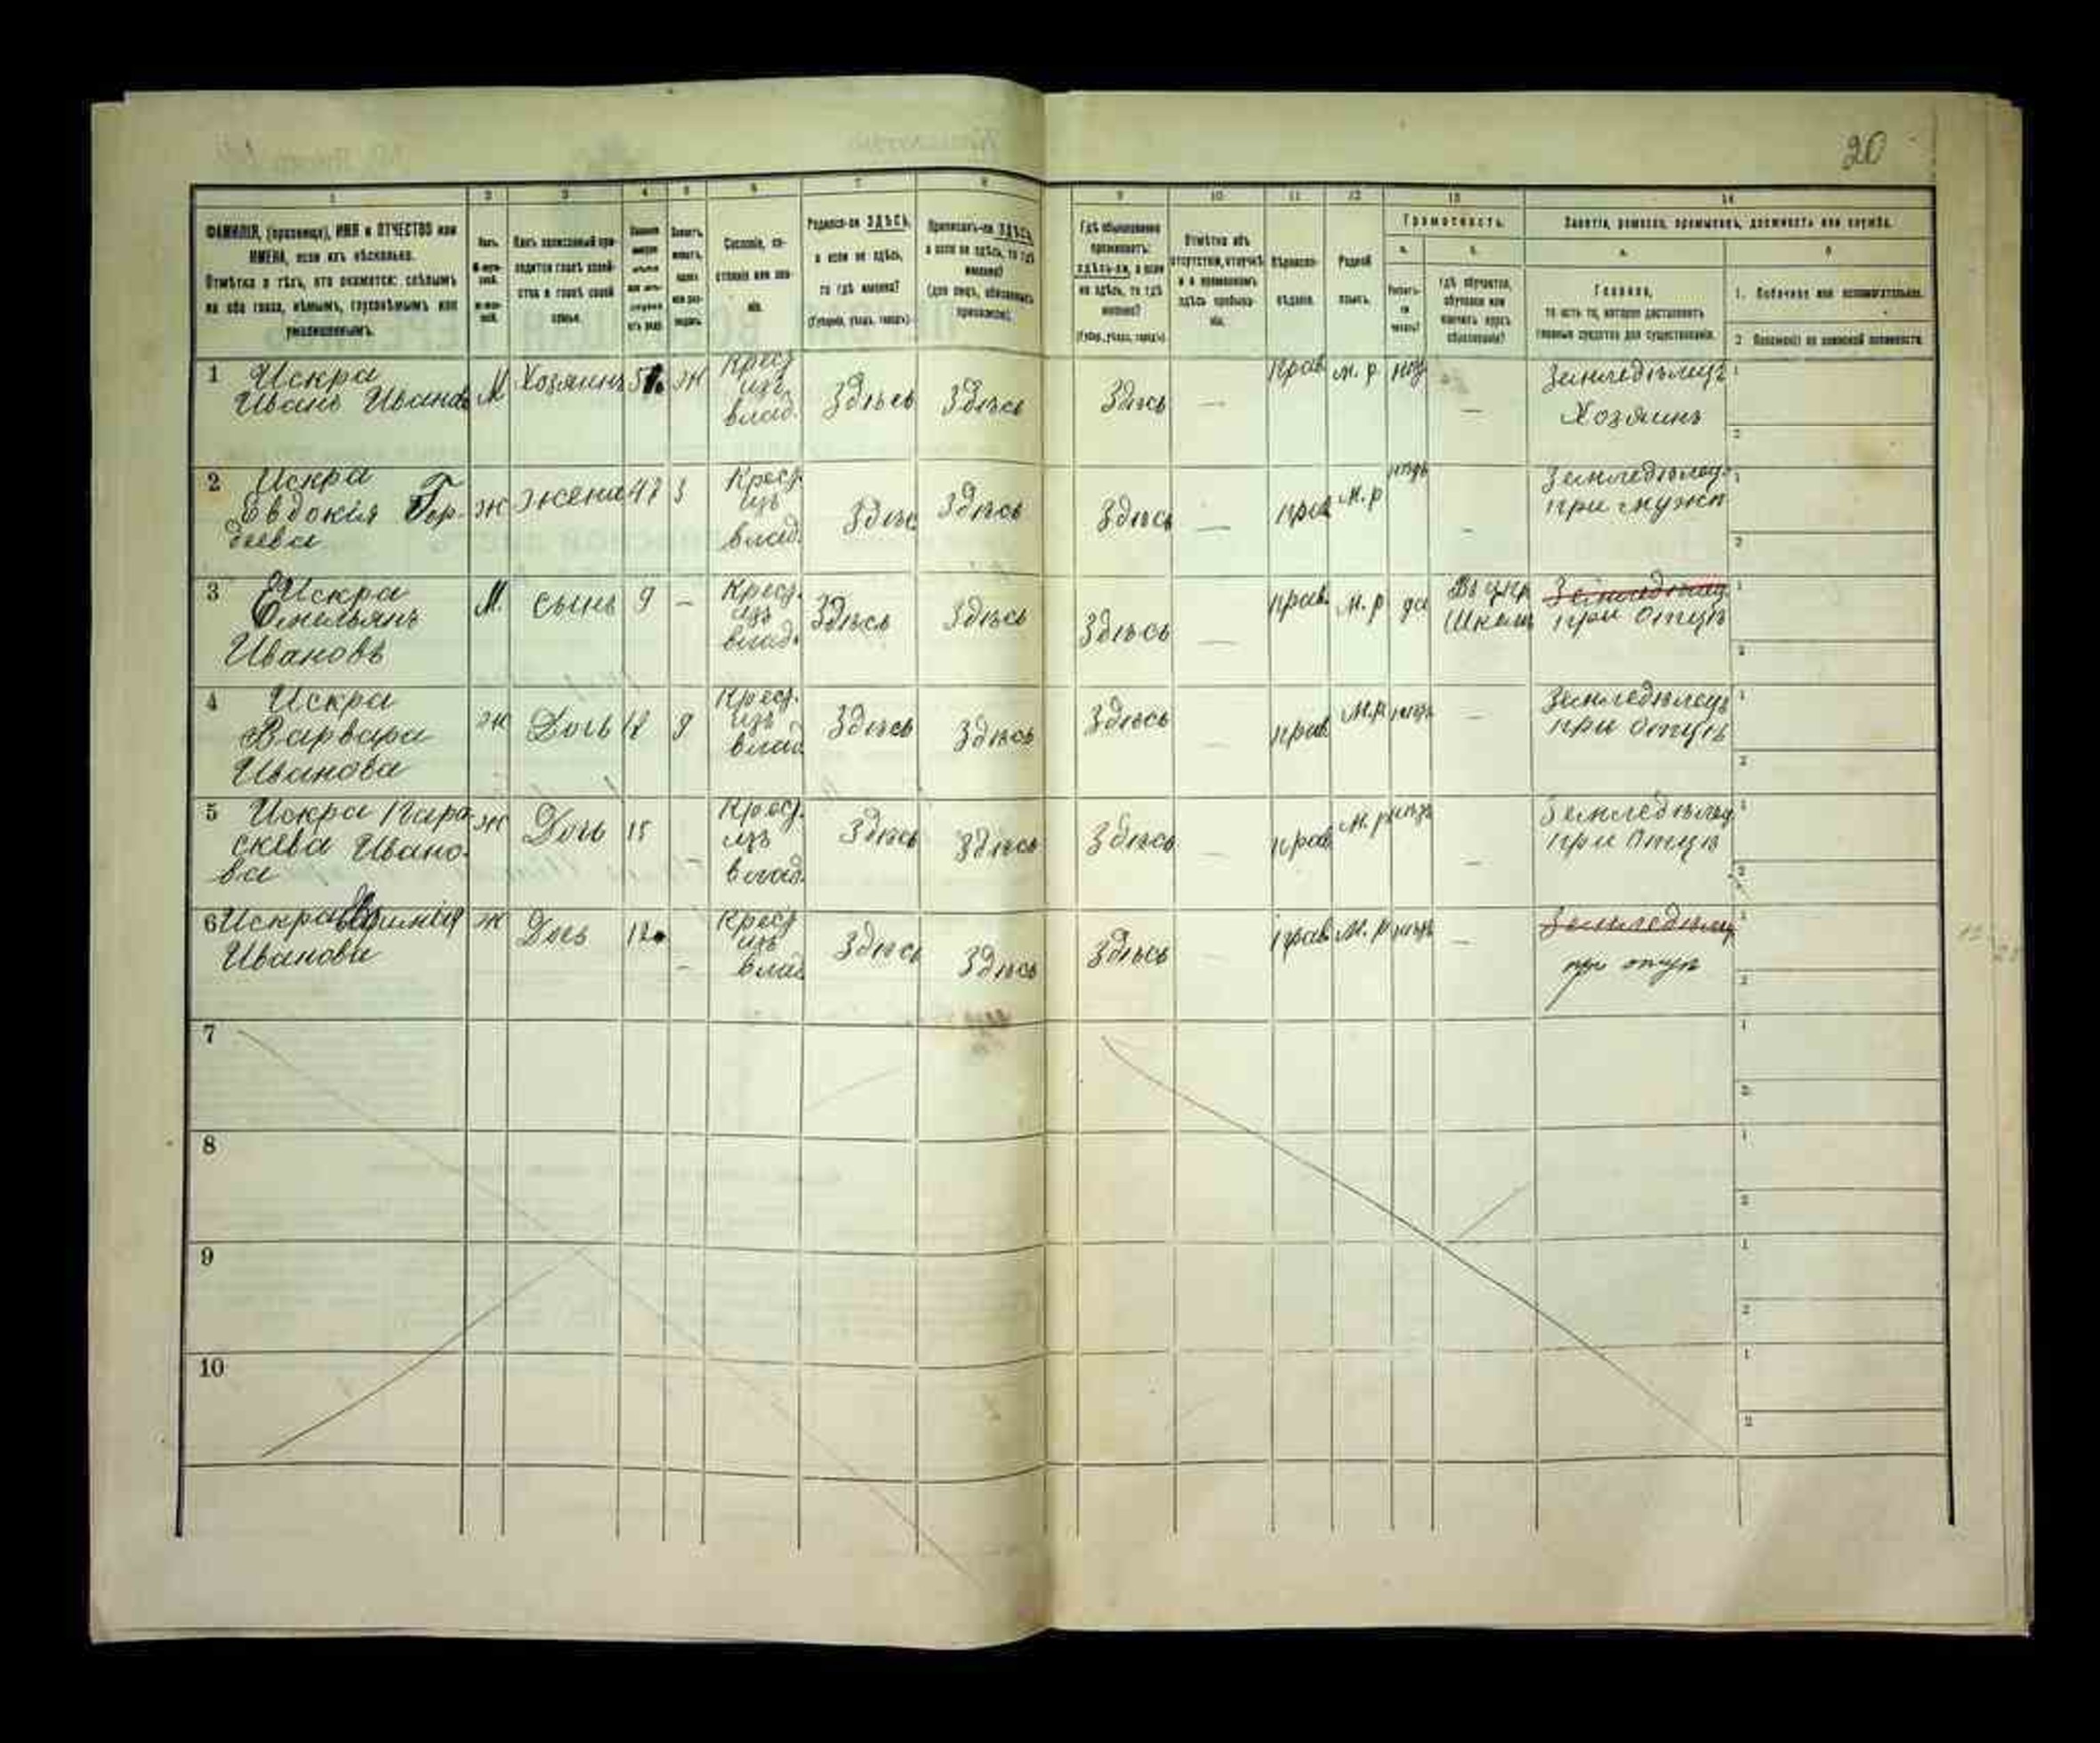 20
1 2 3 4 5 6 7 8 9 10 11 12 13 14
ФАМИЛІЯ, (прозвище), ИМЯ и ОТЧЕСТВО или
ИМЕНА, если ихъ нѣсколько.
Отмѣтка о тѣхъ, кто окажется: слѣпымъ
на оба глаза, нѣмымъ, глухонѣмымъ или
умалишеннымъ.
Полъ.
М-муж-
ской.
Ж-жен-
скій.
Какъ записанный при-
ходится главѣ хозяй-
ства и главѣ своей
семьи.
Сословіе, со-
стояніе или зва-
ніе.
Родился-ли ЗДѢСЬ,
а если не здѣсь,
то гдѣ именно?
(Губернія, уѣздъ, городъ).
Приписанъ-ли ЗДѢСЬ,
а если не здѣсь, то гдѣ
именно?
(для лицъ, обязанныхъ
припискою).
Гдѣ обыкновенно
проживаетъ:
здѣсь-ли, а если
не здѣсь, то гдѣ
именно?
(Губер., уѣздъ, городъ).
Отмѣтка объ
отсутствіи, отлучкѣ
и о временномъ
здѣсь пребыва-
ніи.
Вѣроиспо-
вѣданіе.
Родной
языкъ.
Грамотность.
а. б.
Умѣетъ-
ли
читать?
гдѣ обучается,
обучался или
кончилъ курсъ
образованія?
Занятіе, ремесло, промыселъ, должность или служба.
а. б
Главное,
то есть то, которое доставляетъ
главныя средства для существованія.
1. Побочное или вспомогательное.
2 Положеніе по воинской повинности.
1 Искра М Хозяинъ Ж Крест Здѣсь Здѣсь Здѣсь — прав м. р — Земледѣлецъ 1
Иванъ Ивановъ изъ Хозяинъ
влад. 2
2 Искра ж жена 47 Крест Здѣсь Здѣсь Здѣсь — прав м. р – Земледѣлец. 1
Евдокія изъ при мужѣ
влад. 2
3 Искра М. сынъ 9 – Крест. Здѣсь Здѣсь Здѣсь — прав. м. р да Земледѣлец 1
Омельянъ изъ Школѣ при Отцѣ
Ивановъ влад. 2
4 Искра ж Дочь Крест. Здѣсь Здѣсь Здѣсь — прав М.р — Земледѣлецъ 1
Варвара изъ при отцѣ
Иванова влад 2
5 Искра Пара ж Дочь 15 Крест. Здѣсь Здѣсь Здѣсь — прав М. р — Земледѣлец 1
скева Ивано- изъ при Отцѣ
ва влад. 2
6 Искра ж Дочь – Крест Здѣсь Здѣсь Здѣсь — прав М. р — Земледѣлец 1
Иванова изъ при отцѣ
влад 2
7 1
2
8 1
2
9 1
2
10 1
2